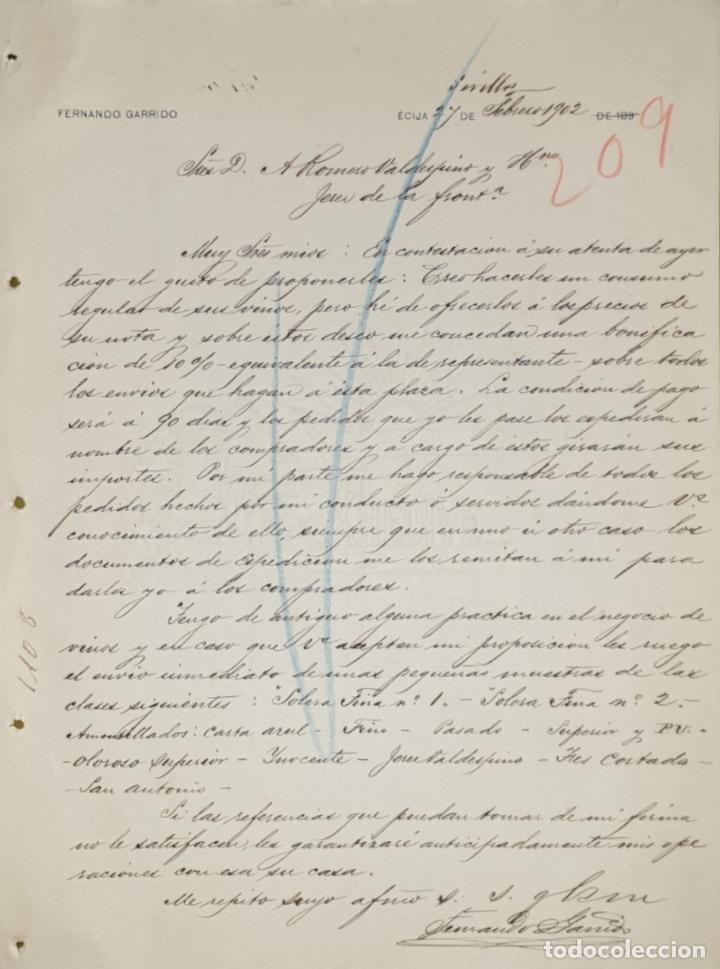 Sevilla
FERNANDO GARRIDO ÉCIJA 27 DE Febrero 1902 DE 189
209
Sres D. A Romero Valdespino y Hno
Jerez de la Front.ª
Muy Sres mios: En contestacion á su atenta de ayer
tengo el gusto de proponerles: Creo hacerles un consumo
regular de sus vinos, pero hé de ofrecerlos á los precios de
su nota y sobre estos deseo me concedan una bonifica
cion de 10% - equivalente á la de representante - sobre todos
los envios que hagan á ésta plaza. La condicion de pago
será á 90 dias y los pedidos que yo les pase los expediran á
nombre de los compradores y a cargo de éstos girarán sus
importes. Por mi parte me hago responsable de todos los
pedidos hechos por mi conducto ó servidos dándome Vs
conocimiento de ello, siempre que en uno ú otro caso los
documentos de Expedicion me los remitan á mi para
darlos yo á los compradores.
Tengo de antiguo alguna practica en el negocio de
vinos y en caso que Vs acepten mi proposicion les ruego
el envio inmediato de unas pequeñas muestras de las
clases siguientes: "Solera Fina nº 1. - "Solera Fina nº 2. -
Amontillados: carta azul - Fino - Pasado - Superior y P.V. -
- Oloroso Superior - Inocente - Jerez Valdespino - Tres Cortados -
- San Antonio -
Si las referencias que puedan tomar de mi firma
no le satisfacen, les garantizaré anticipadamente mis ope
raciones con esa su casa.
Me repito suyo afmo s. s. q b s m
Fernando Garrido
1108
todocoleccion